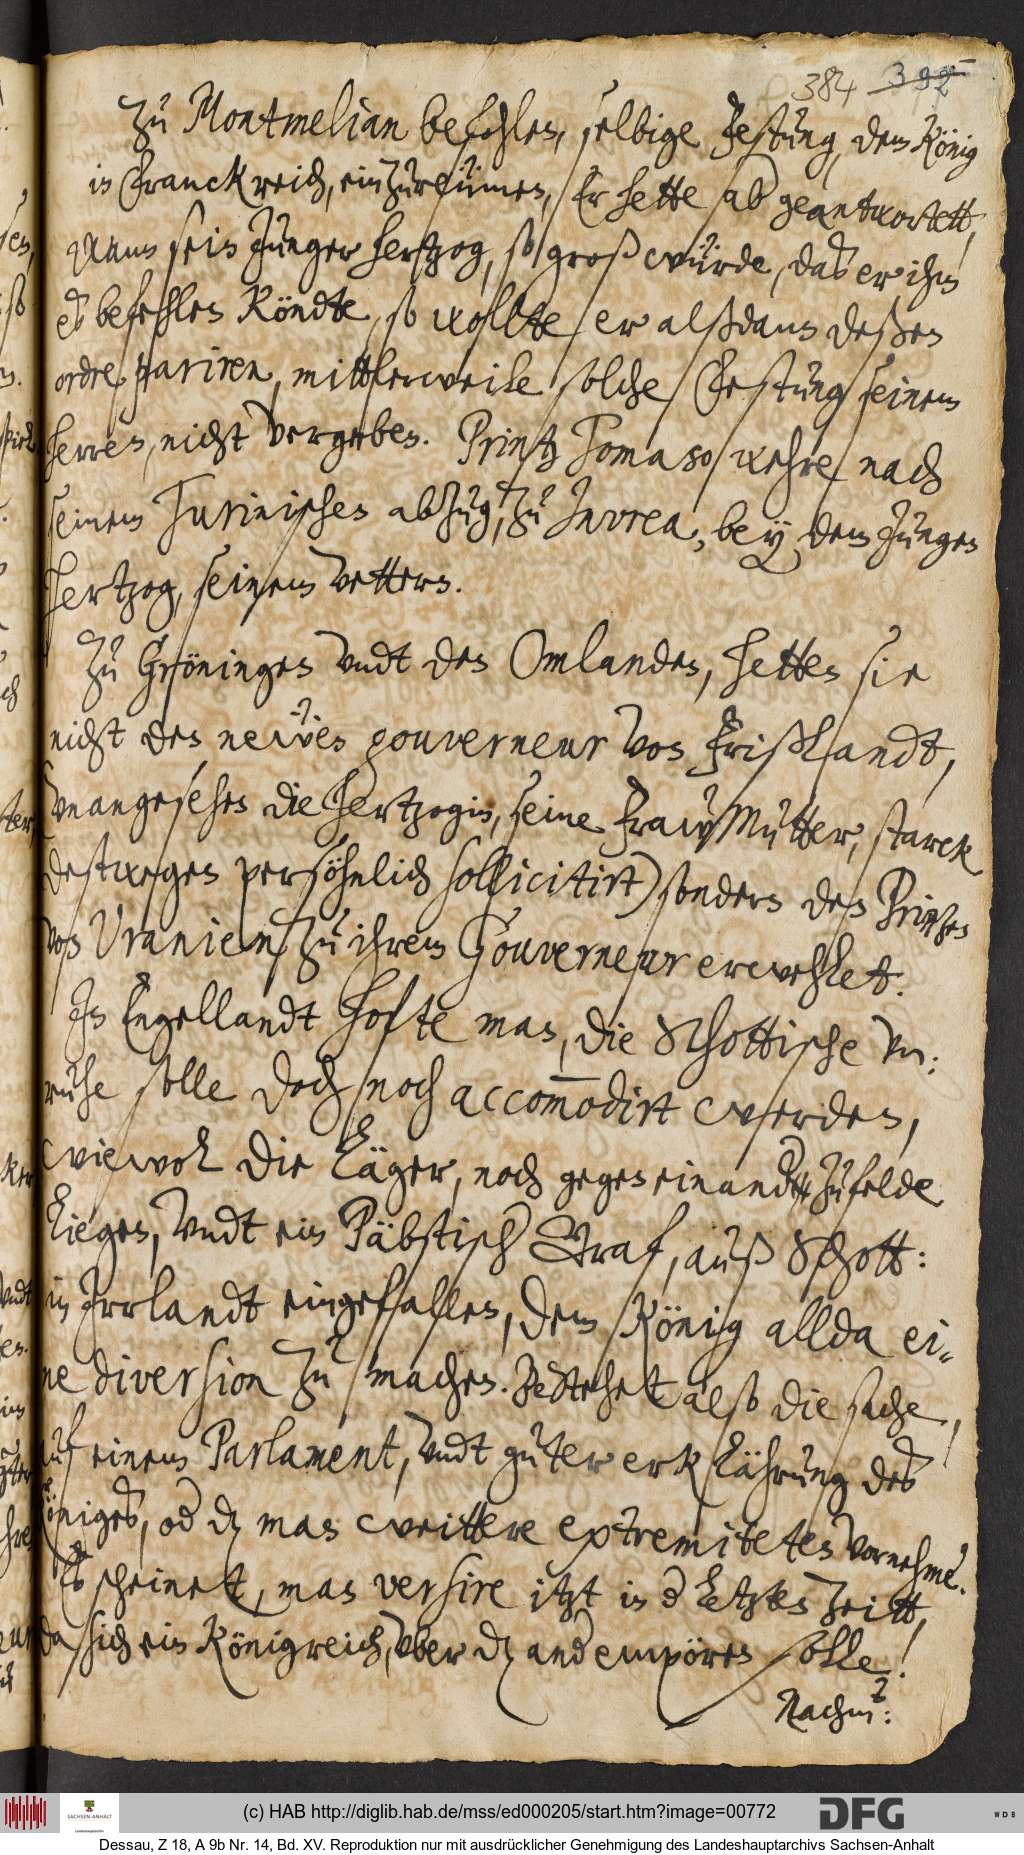 384 392
Zu Montmelian befohlen, selbige Festung, dem König
in Franckreich, einzureümen, Er hette ab geantwortett,
Wann sein Junger hertzog, so groß würde, das er ihm
es befehlen köndte, so wollte er alßdann deßen
ordre pariren, mittlerweile solche Festung seinem
herren, nicht vergeben. Printz Tomaso wehre nach
seinem Turinischen abzug, zu Invrea, bey dem Jungen
Hertzog, seinem Vettern.
Zu Gröningen vndt den Omlanden, hetten sie
nicht den newen gouverneur von Frißlandt,
Vnangesehen die Hertzogin, seine Fraw Mutter, starck
destwegen persöhnlich sollicitirt) sondern den Printzen
von Uranien zu ihrem Gouverneur erwehlet.
In Engellandt hofte man, die Schottische Vn:
ruhe solle doch noch accommodirt werden,
wiewol die Läger, noch gegen einander zu felde
liegen, vndt ein Päbstisch Graf, auß Schott:
in Irrlandt eingefallen, dem König allda ei-
ne diversion zu machen. Bestehet also die sache,
auf einem Parlament, vndt guter erklährung des
Königes, od dz man weittere extremiteten vornehme.
Es scheinet, man versire itzt in d letzten Zeitt,
da sich ein Königreich, vber dz and empören solle!
Nachm:
(c) HAB http://diglib.hab.de/mss/ed000205/start.htm?image=00772
DFG
SACHSEN-ANHALT
Landeshauptarchiv
WDB
Dessau, Z 18, A 9b Nr. 14, Bd. XV. Reproduktion nur mit ausdrücklicher Genehmigung des Landeshauptarchivs Sachsen-Anhalt